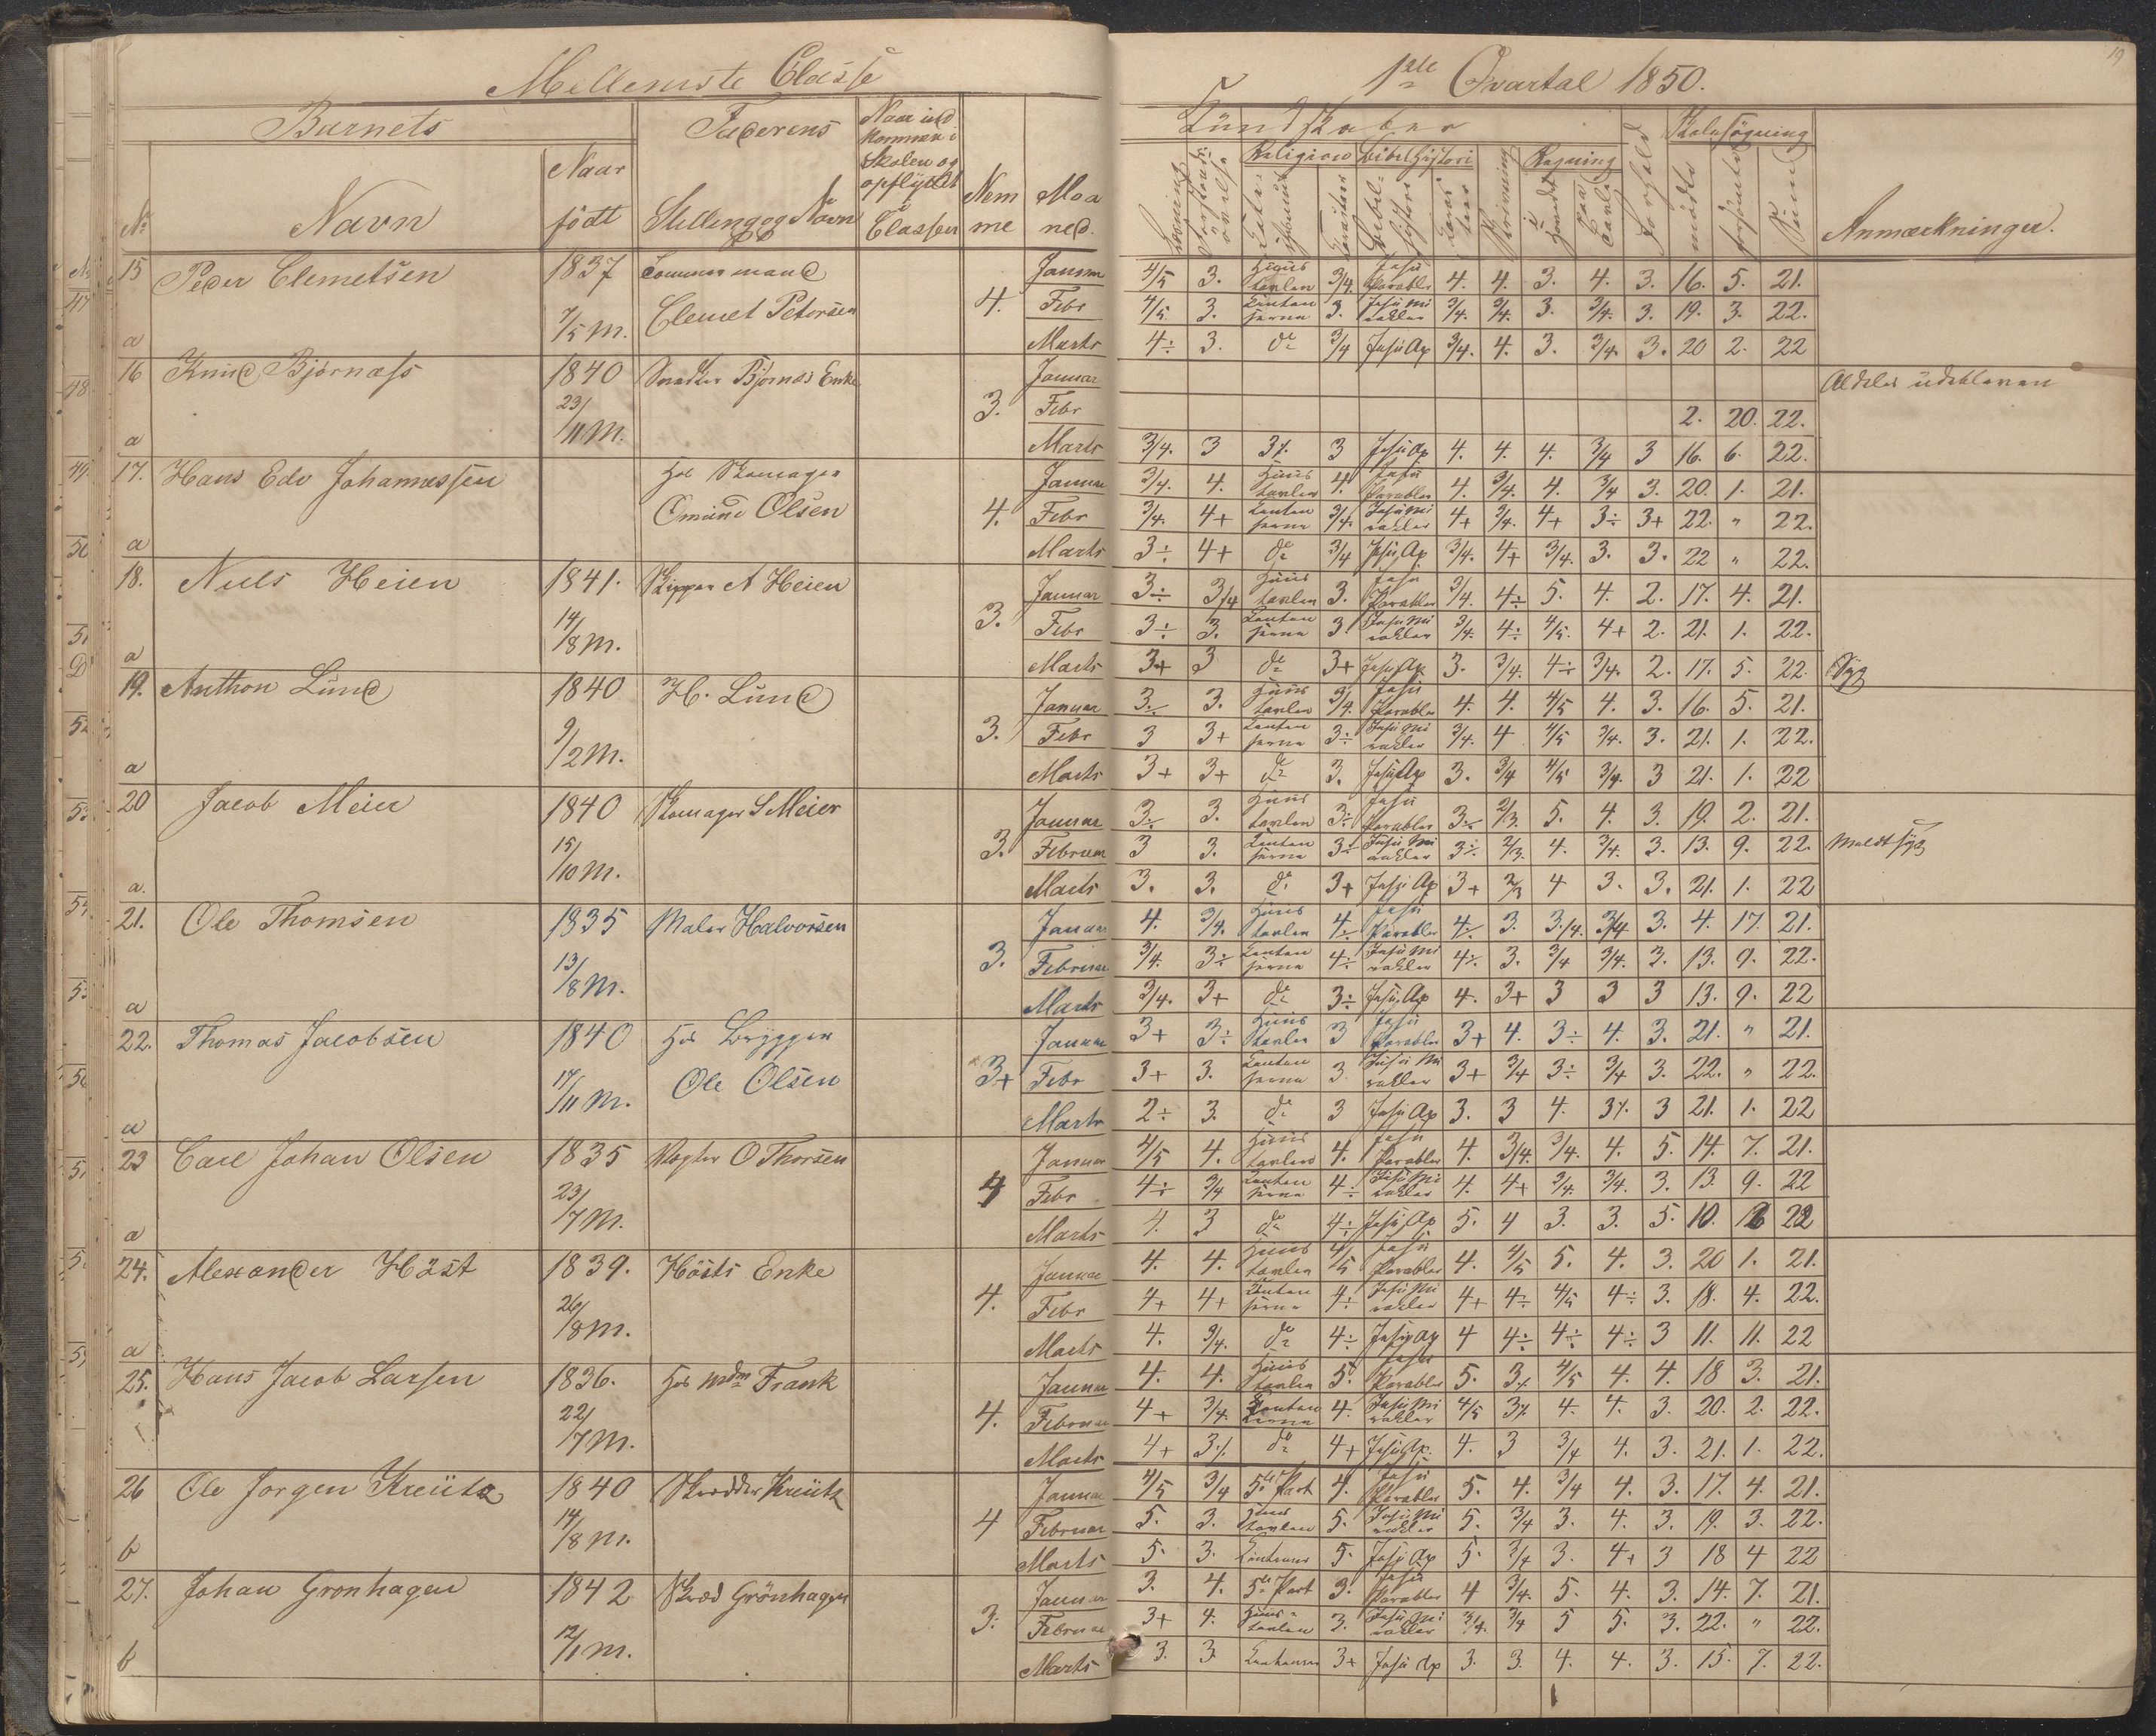 Mellemste Classe
1ste Qvartal 1850.
19
Barnets
Faderens
Naar ind
kommen i
Skolen og
opflyttet
i
Classen
Nem
me
Maa
ned.
No
Navn
Naar
født
Stilling og Navn
Kundskaber
Religion
Bibelhistori
Regning
Forhold
Skolesøgning
Anmærkninger.
15 Peder Clemetsen 1837 Lommemand
7/5 M. Clemet Petersen 4.
a
Januar 4/5 3. Huus tavlen 3/4. Jesu Parabler 4. 4. 3. 4. 3. 16. 5. 21.
Febr 4/5 3. 3. Jesu Mi rakler 3/4. 3/4. 3. 3/4. 3. 19. 3. 22.
Marts 4÷ 3. do 3/4 Jesu Ap 3/4. 4. 3. 3/4. 3. 20 2. 22
16 Knud Bjørnæss 1840 Snedker Bjørnæs Enke
23/11 M. 3.
a
Januar Aldeles udebleven
Febr 2. 20. 22.
Marts 3/4. 3 3 Jesu Ap 4. 4. 4. 3/4 3 16. 6. 22.
17. Hans Edv Johannessen Hos Skomager
Omund Olsen 4.
a
Januar 3/4. 4. Huus tavlen 4. Jesu Parabler 4. 3/4. 4. 3/4 3. 20. 1. 21.
Febr 3/4. 4+ 3/4. Jesu Mi rakler 4+ 3/4. 4+ 3÷ 3+ 22. " 22.
Marts 3÷ 4+ do 3/4 Jesu Ap. 3/4. 4+ 3/4. 3. 3. 22 " 22.
18. Niels Heien 1841. Skipper A Heien
14/8 M. 3.
a
Januar 3÷ 3/4 Huus tavlen 3. Jesu Parabler 3/4. 4÷ 5. 4. 2. 17. 4. 21.
Febr 3÷ 3. 3 Jesu Mi rakler 3/4. 4÷ 4/5. 4+ 2. 21. 1. 22.
Marts 3+ 3 do 3+ Jesu Ap 3. 3/4. 4÷ 3/4. 2. 17. 5. 22. Syg
19. Anthon Lund 1840 H. Lund
9/2 M. 3.
a
Januar 3÷ 3. Huus tavlen 3/4. Jesu Parabler 4. 4. 4/5 4. 3. 16. 5. 21.
Febr 3 3+ 3÷ Jesu Mi rakler 3/4. 4 4/5 3/4. 3. 21. 1. 22.
Marts 3+ 3+ do 3. Jesu Ap 3. 3/4 4/5 3/4. 3 21. 1. 22
20 Jacob Meier 1840 Skomager S Meier
15/10 M. 3.
a.
Januar 3÷ 3. Huus tavlen 3÷ Jesu Parabler 3÷ 2/3. 5. 4. 3. 19. 2. 21.
Februar 3 3. 3÷ Jesu Mi rakler 3÷ 2/3. 4. 3/4. 3. 13. 9. 22. meldt syg
Marts 3. 3. do 3+ Jesu Ap 3+ 2/3 4 3. 3. 21. 1. 22
21. Ole Thomsen 1835 Maler Halvorsen
13/8 M. 3.
a
Januar 4. 3/4. Huus tavlen 4÷ Jesu Parabler 4÷ 3. 3/4. 3/4 3. 4. 17. 21.
Februar 3/4. 3÷ 4÷ Jesu Mi rakler 4÷ 3. 3/4 3/4. 3. 13. 9. 22.
Marts 3/4. 3+ do 3÷ Jesu Ap 4. 3+ 3 3 3 13. 9. 22
22. Thomas Jacobsen 1840 Hos Brygger
17/11 M. Ole Olsen 3+
a
Januar 3+ 3÷ Huus tavlen 3 Jesu Parabler 3+ 4. 3÷ 4. 3. 21. " 21.
Febr 3+ 3. 3 Jesu Mi rakler 3+ 3/4 3÷ 3/4 3. 22. " 22.
Marts 2÷ 3. do 3 Jesu Ap 3. 3 4. 3÷ 3 21. 1. 22
23 Carl Johan Olsen 1835 Vægter O Thorsen
23/7 M. 4
a
Januar 4/5 4. Huus tavlen 4. Jesu Parabler 4. 3/4. 3/4. 4. 5. 14. 7. 21.
Febr 4÷ 3/4 4÷ Jesu Mi rakler 4. 4+ 3/4. 3/4. 3. 13. 9. 22
Marts 4. 3 do 4÷ Jesu Ap 5. 4 3. 3. 5. 10. 12 22
24. Alexander Høst 1839. Høsts Enke
26/8 M. 4.
a
Januar 4. 4. Huus tavlen 4/5 Jesu Parabler 4. 4/5 5. 4. 3. 20 1. 21.
Febr 4+ 4+ 4÷ Jesu Mi rakler 4+ 4÷ 4/5 4÷ 3. 18. 4. 22.
Marts 4. 3/4. do 4÷ Jesu Ap 4 4÷ 4÷ 4÷ 3 11. 11. 22
25. Hans Jacob Larsen 1836. Hos Mdm Frank
22/7 M. 4.
Januar 4. 4. Huus tavlen 5. Jesu Parabler 5. 3÷ 4/5 4. 4. 18 3. 21.
Februar 4+ 3/4. 4. Jesu Mi rakler 4/5 3÷ 4. 4. 3. 20. 2. 22.
Marts 4+ 3÷ do 4+ Jesu Ap. 4. 3 3/4 4. 3. 21. 1. 22.
26 Ole Jørgen Kreütz 1840 Skrædder Kreütz
14/8 M. 4
b
Januar 4/5 3/4 5te Part 4. Jesu Parabler 5. 4. 3/4 4. 3. 17. 4. 21.
Februar 5. 3. Huus tavlen 5. Jesu Mi rakler 5. 3/4 3. 4. 3. 19. 3. 22.
Marts 5. 3. 5. Jesu Ap 5. 3/4 3. 4+ 3 18 4 22
27. Johan Grønhagen 1842 Skræd Grönhagen
12/1 M. 3.
b
Januar 3. 4. 5te Part 3. Jesu Parabler 4 3/4. 5. 4. 3. 14. 7. 21.
Februar 3+ 4. Huus- tavlen 3. Jesu Mi rakler 3/4. 3/4 5 5. 3. 22. " 22.
Marts 3. 3 3+ Jesu Ap 3. 3. 4. 4. 3. 15. 7. 22.